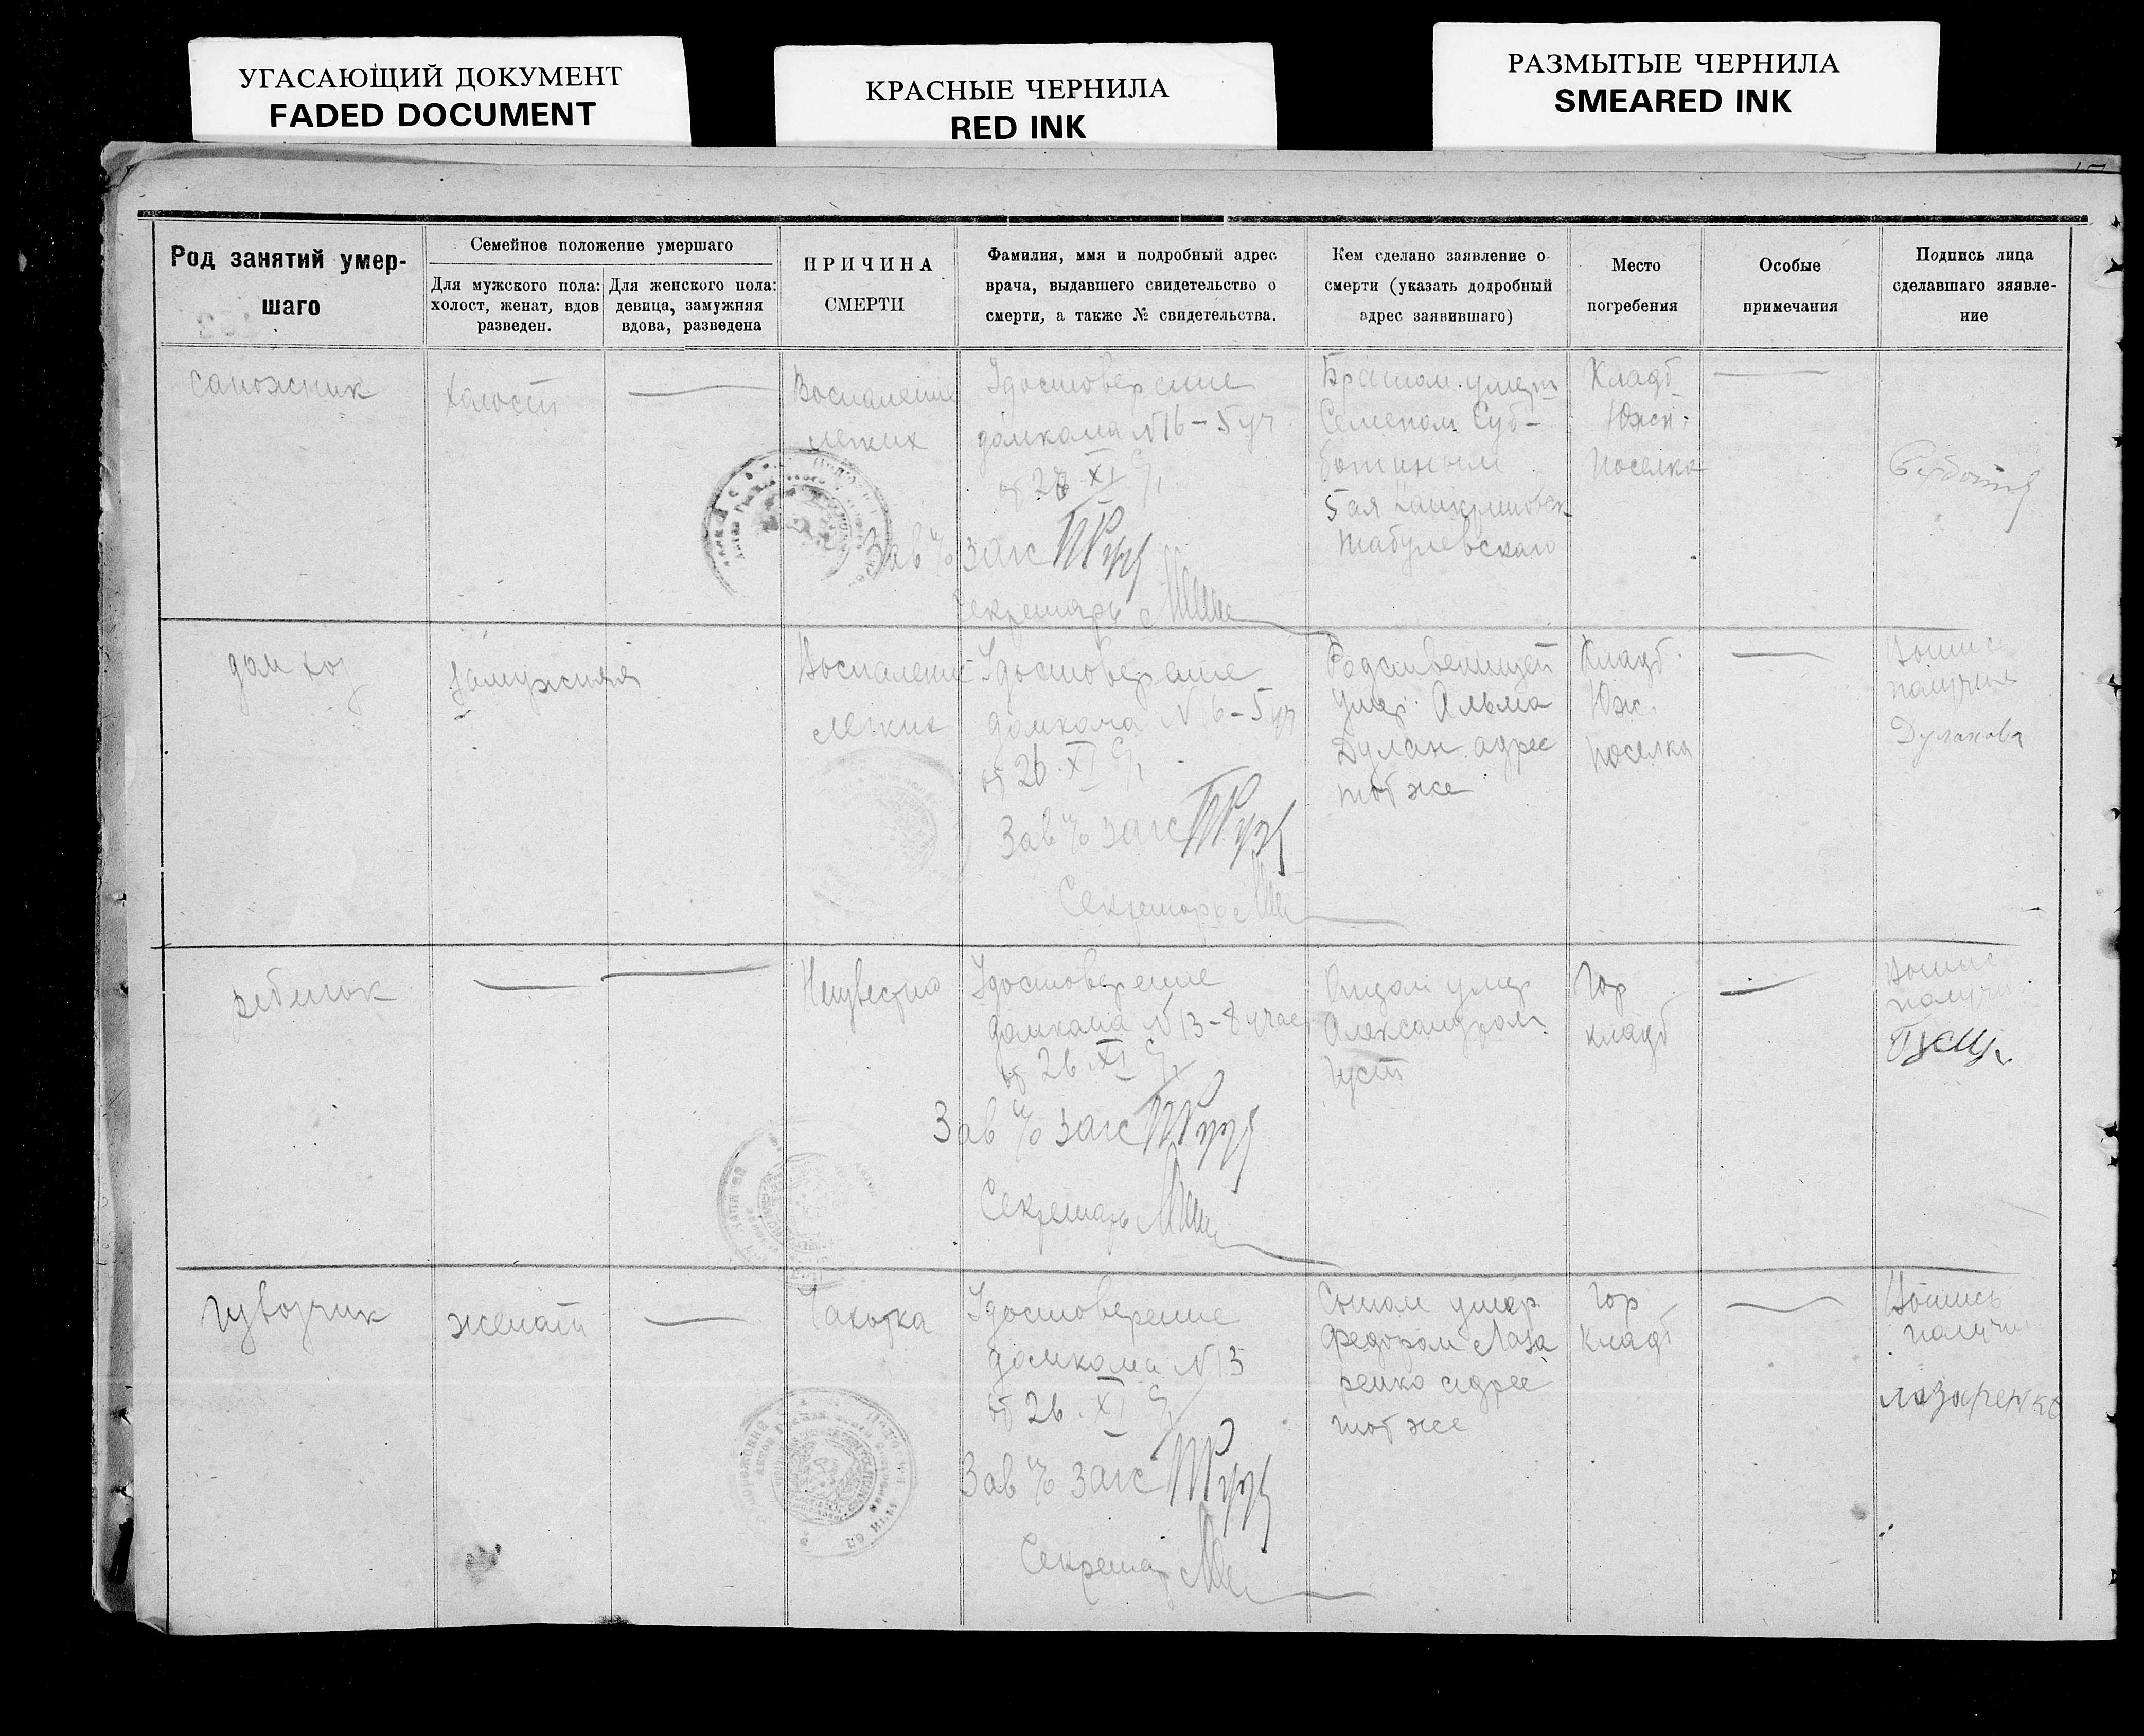 УГАСАЮЩИЙ ДОКУМЕНТ
FADED DOCUMENT
КРАСНЫЕ ЧЕРНИЛА
RED INK
РАЗМЫТЫЕ ЧЕРНИЛА
SMEARED INK
Род занятий умер-
шаго
Семейное положение умершаго
Для мужского пола:
холост, женат, вдов
разведен.
Для женского пола:
девица, замужняя
вдова, разведена
ПРИЧИНА
СМЕРТИ
Фамилия, ммя и подробный адрес
врача, выдавшего свидетельство о
смерти, а также № свидетельства.
Кем сделано заявление о
смерти (указать додробный
адрес заявившаго)
Место
погребения
Особые
примечания
Подпись лица
сделавшаго зяявле-
ние
сапожник
холост
Воспаление
легких
Удостоверение
домкома N16-5 уч
от 26 XI
Зав п/о загс
Секретарь
Братом умерш
Семеном Суб-
ботиным
5ая
Кладб
Южн.
поселка
дом хоз
замужняя
Воспаление
легких
Удостоверение
домкома N16-5 уч
от 26 XI
Зав п/о загс
Секретарь
Родственницей
умер. Альма
Дулан адрес
тот же
Кладб.
Юж.
поселка
получил
ребенок
Неизвестно
Удостоверение
домкома N13-8 участ
от 26 XI
Зав п/о загс
Секретарь
Отцом умер
Александром
Гор
кладб
получи
Извозчик
женат
Чахотка
Удостоверение
домкома N13
от 26. XI
Зав п/о загс
Секретар
Сыном умер
Федором Лаза
ренко адрес
тот же
Гор
Кладб
получи
Лазаренко